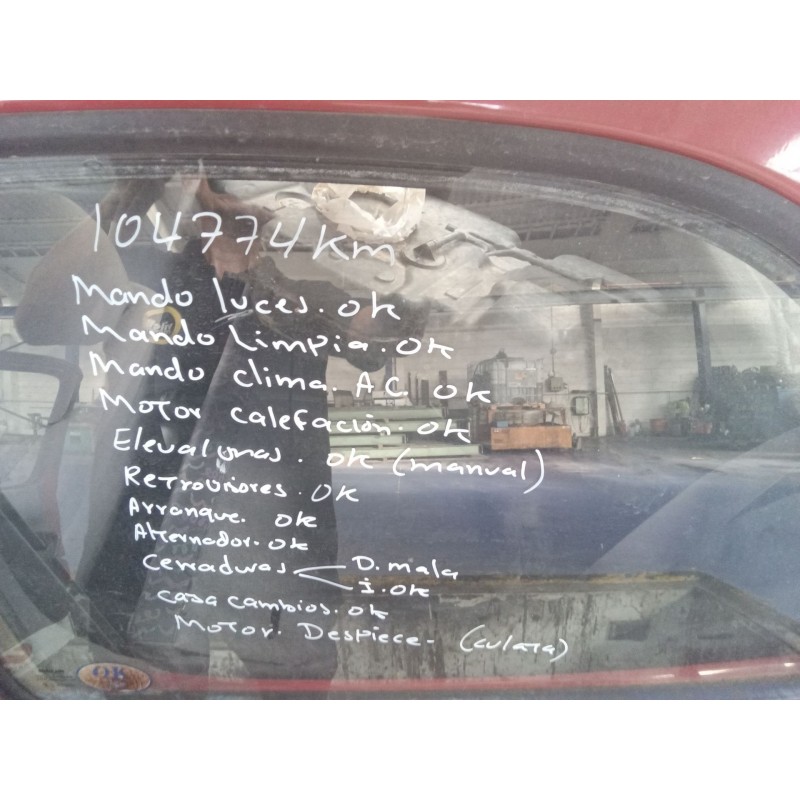 104774Km
Mando luces. ok
Mando Limpia. OK
Mando clima. A.C. OK
Motor calefación. OK
Elevalunas. OK (manual)
Retrovisores. OK
Arranque. OK
Alternador. OK
Cerraduras D. mala
I. OK
caja cambios. OK
Motor. Despiece - (culata)
OK